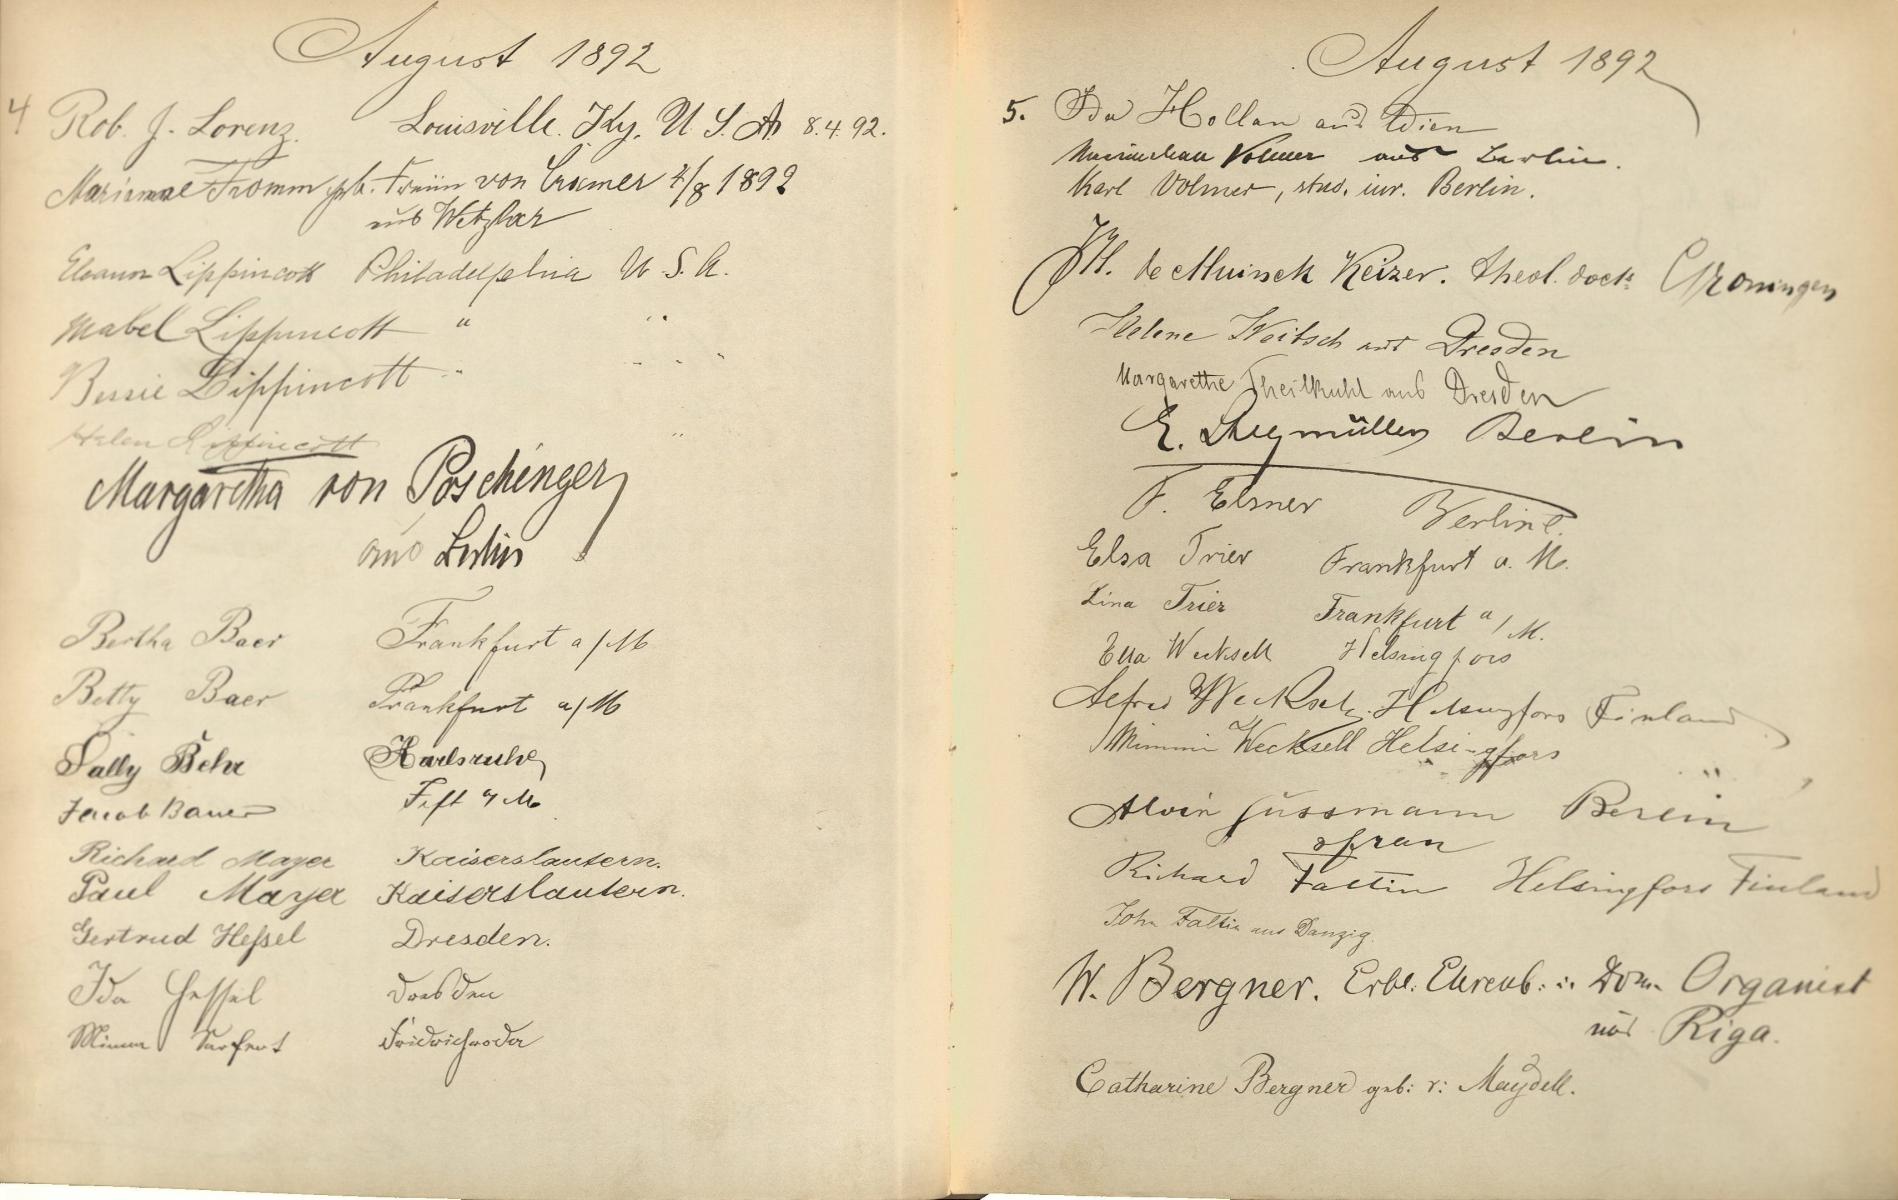 August 1892
4 Rob. J. Lorenz. Louisville. Ky. U. S. A. 8.4.92.
Marianne Fromm geb. Freiin von Cramer 4/8 1892
aus Wetzlar
Eleanor Lippincott Philadelphia U. S. A.
Mabel Lippincott " "
Bessie Lippincott " " "
Helen Lippincott "
Margaretha von Poschinger
aus Berlin
Bertha Baer Frankfurt a/M
Betty Baer Frankfurt a/M
Sally Behr Karlsruhe
Jacob Bauer Fft a/M
Richard Mayer Kaiserslautern.
Paul Mayer Kaiserslautern.
Gertrud Heſsel Dresden.
Ida Heſsel Dresden
Minna Friedrichroda
August 1892
5. Ida Hollan aus Wien
Volmer aus Berlin.
Karl Volmer, stud. iur. Berlin.
de Muinck Keizer. theol. doct: Groningen
Helene Woitsch aus Dresden
Margarethe Theilkuhl aus Dresden
E. Berlin
F. Elsner Berlin
Elsa Trier Frankfurt a. M.
Lina Trier Frankfurt a/M.
Ella Wecksell Helsingfors
Alfred Wecksell. Helsingfors Finland
Mimmi Wecksell Helsingfors
Alvin Gussmann Berlin
Richard Faltin Helsingfors Finland
John Faltin aus Danzig.
W. Bergner. Erbl. Ehrenb: u: Dom-Organist
aus Riga.
Catharine Bergner geb: v: Maydell.